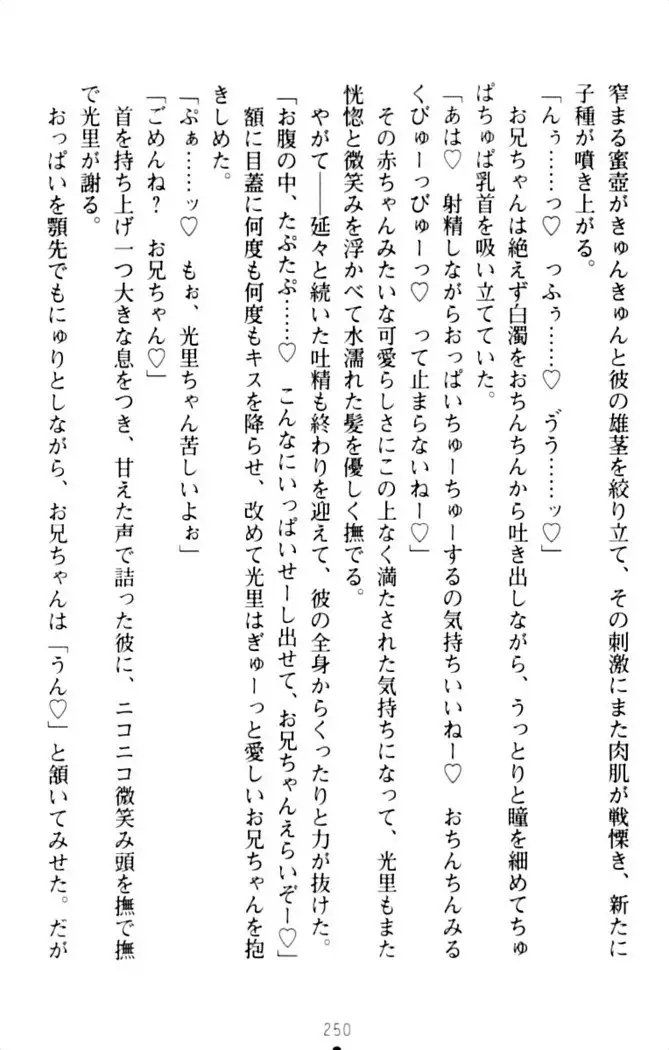 窄まる蜜壺がきゅんきゅんと彼の雄茎を絞り立て、その刺激にまた肉肌が戦慄き、新たに
子種が噴き上がる。
「んぅ……っ♡　っふぅ……♡　ゔう……ッ♡」
お兄ちゃんは絶えず白濁をおちんちんから吐き出しながら、うっとりと瞳を細めてちゅ
ぱちゅぱ乳首を吸い立てていた。
「あは♡　射精しながらおっぱいちゅーちゅーするの気持ちいいねー♡　おちんちんみる
くびゅーっびゅーっ♡　って止まらないねー♡」
その赤ちゃんみたいな可愛らしさにこの上なく満たされた気持ちになって、光里もまた
恍惚と微笑みを浮かべて水濡れた髪を優しく撫でる。
やがて――延々と続いた吐精も終わりを迎えて、彼の全身からくったりと力が抜けた。
「お腹の中、たぷたぷ……♡　こんなにいっぱいせーし出せて、お兄ちゃんえらいぞー♡」
額に目蓋に何度も何度もキスを降らせ、改めて光里はぎゅーっと愛しいお兄ちゃんを抱
きしめた。
「ぷぁ……ッ♡　もぉ、光里ちゃん苦しいよぉ」
「ごめんね？　お兄ちゃん♡」
首を持ち上げ一つ大きな息をつき、甘えた声で詰った彼に、ニコニコ微笑み頭を撫で撫
で光里が謝る。
おっぱいを顎先でもにゅりとしながら、お兄ちゃんは「うん♡」と頷いてみせた。だが
250